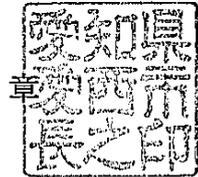 章
愛知県
愛西市
長之印